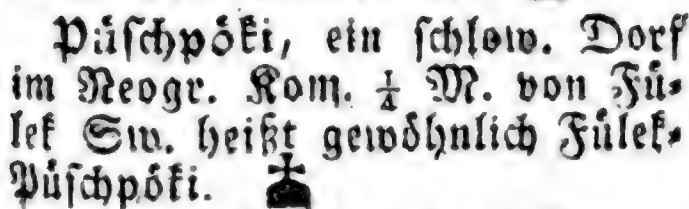 Püſchpöki, ein ſchlow. Dorf
im Neogr. Kom. ¼ M. von Fü⸗
lek Sw. heißt gewöhnlich Fülek⸗
Püſchpöki.